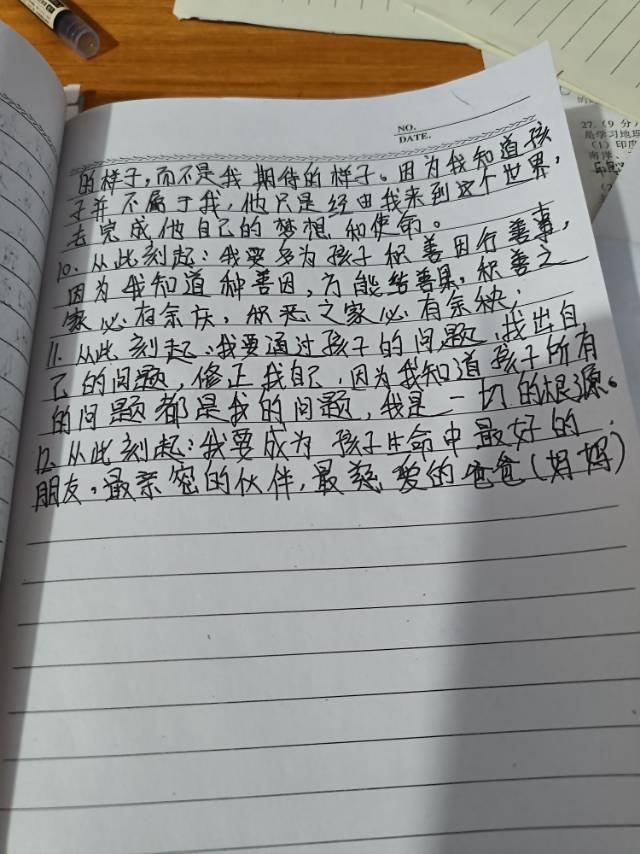 NO.
DATE.
的样子,而不是我期待的样子。因为我知道孩
子并不属于我,他只是经由我来到这个世界,
去完成他自己的梦想和使命。
10. 从此刻起:我要多为孩子积善因行善事,
因为我知道种善因,方能结善果,积善之
家必有余庆,积恶之家必有余殃;
11. 从此刻起:我要通过孩子的问题,找出自
己的问题,修正我自己,因为我知道孩子所有
的问题都是我的问题,我是一切的根源。
12. 从此刻起:我要成为孩子生命中最好的
朋友,最亲密的伙伴,最慈爱的爸爸(妈妈)
27.(9 分)
(1)印度
南洋、